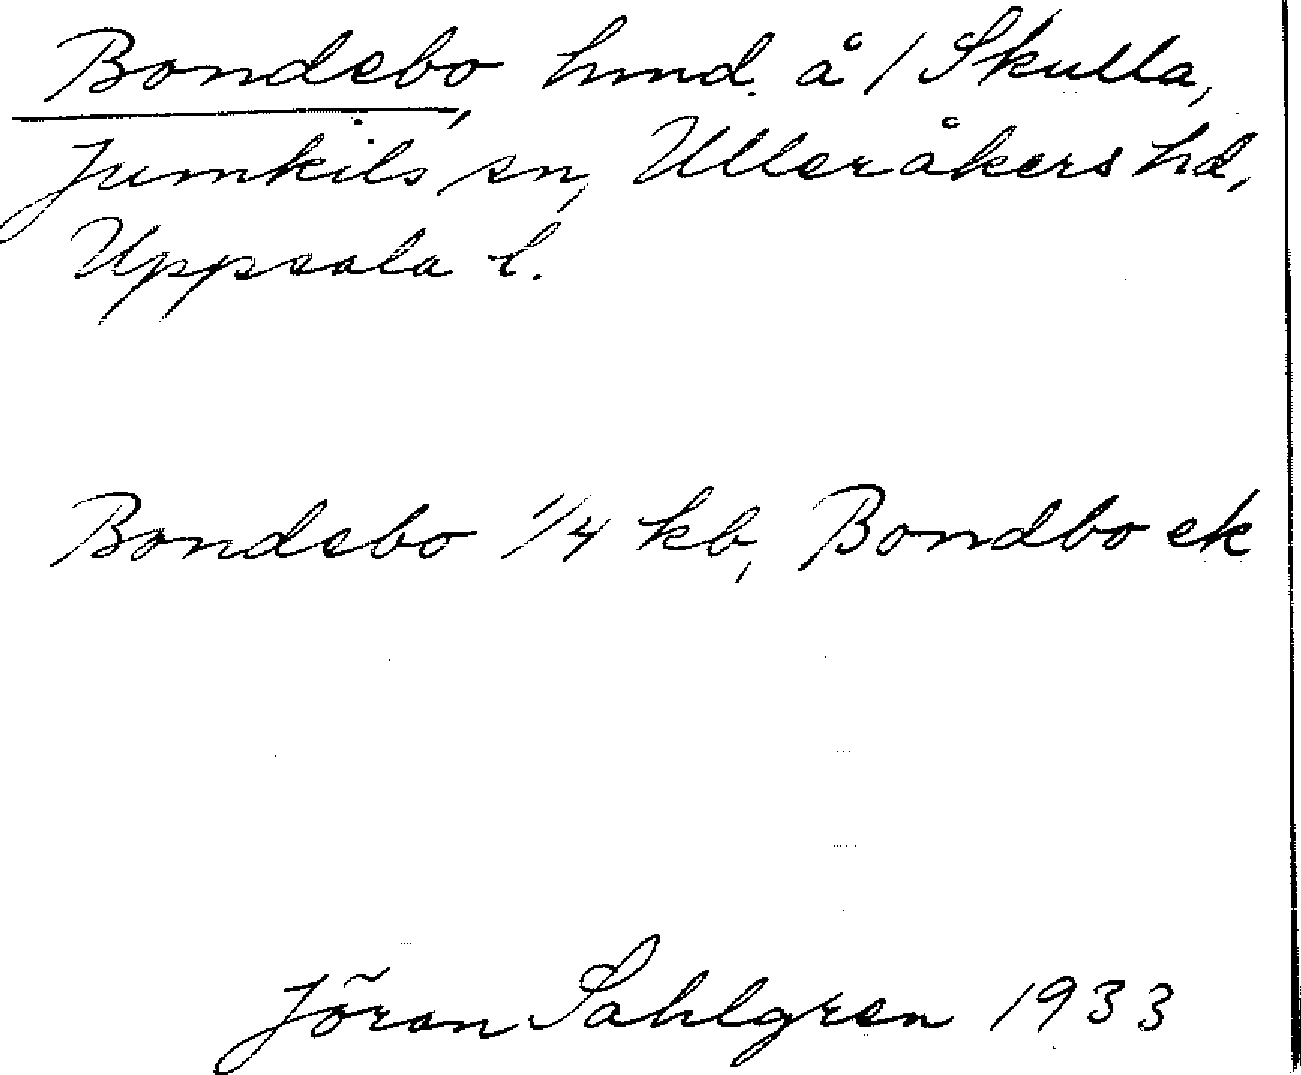 Bondebo, hmd. å / Skulla,
Jumkils sn, Ulleråkers hd,
Uppsala l.
Bondebo 1/4 kb, Bondbo ek
Jöran Sahlgren 1933